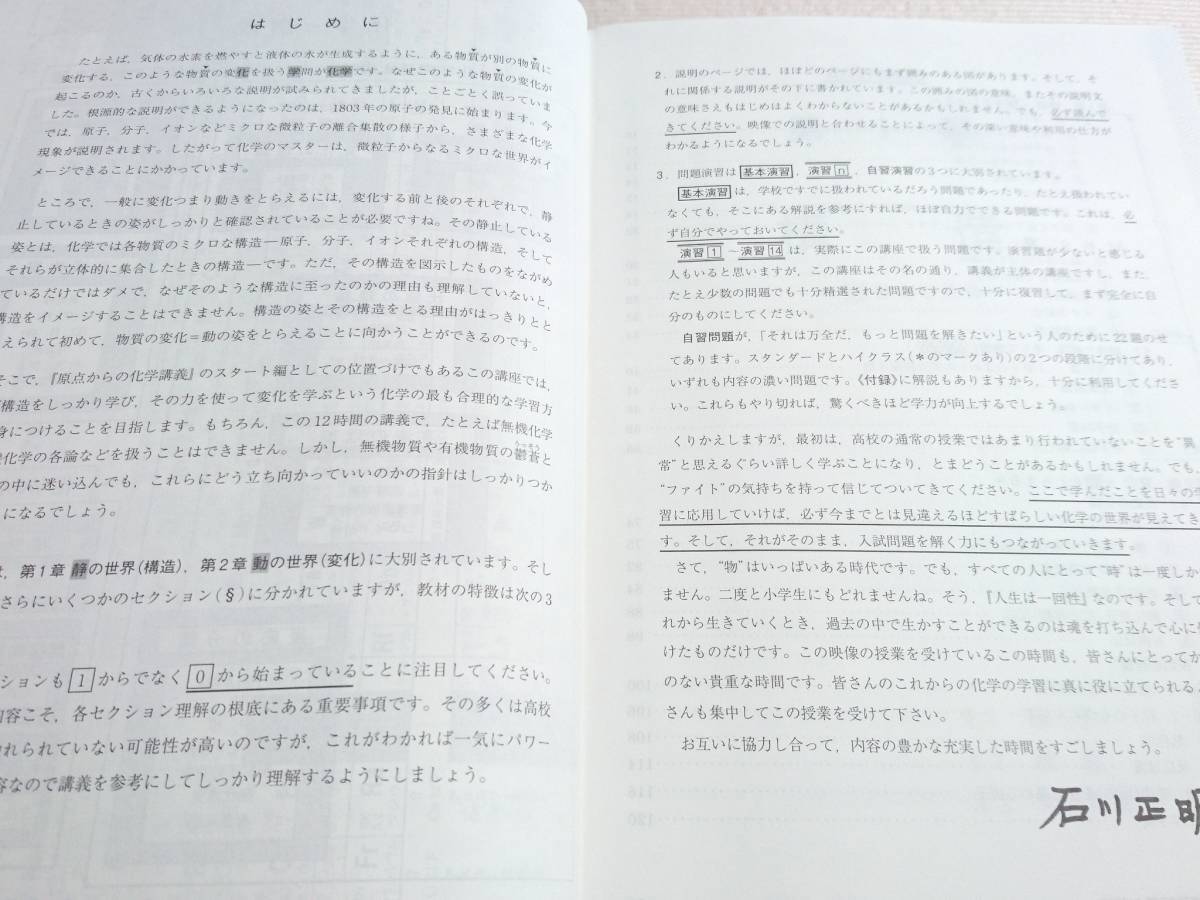 はじめに
たとえば，気体の水素を燃やすと液体の水が生成するように，ある物質が別の物質に
変化する，このような物質の変化を扱う学問が化学です。なぜこのような物質の変化が
起こるのか，古くからいろいろな説明が試みられてきましたが，ことごとく誤っていま
した。根源的な説明ができるようになったのは，1803年の原子の発見に始まります。今
では，原子，分子，イオンなどミクロな微粒子の離合集散の様子から，さまざまな化学
現象が説明されます。したがって化学のマスターは，微粒子からなるミクロな世界がイ
メージできることにかかっています。
ところで，一般に変化つまり動きをとらえるには，変化する前と後のそれぞれで，静
止しているときの姿がしっかりと確認されていることが必要ですね。その静止している
姿とは，化学では各物質のミクロな構造―原子，分子，イオンそれぞれの構造，そして
それらが立体的に集合したときの構造―です。ただ，その構造を図示したものをながめ
ているだけではダメで，なぜそのような構造に至ったのかの理由も理解していないと，
構造をイメージすることはできません。構造の姿とその構造をとる理由がはっきりとと
えられて初めて，物質の変化＝動の姿をとらえることに向かうことができるのです。
そこで，『原点からの化学講義』のスタート編としての位置づけでもあるこの講座では，
構造をしっかり学び，その力を使って変化を学ぶという化学の最も合理的な学習方
身につけることを目指します。もちろん，この12時間の講義で，たとえば無機化学
化学の各論などを扱うことはできません。しかし，無機物質や有機物質の鬱蒼と
の中に迷い込んでも，これらにどう立ち向かっていいのかの指針はしっかりつか
になるでしょう。
，第1章 静の世界（構造），第2章 動の世界（変化）に大別されています。そし
さらにいくつかのセクション（§）に分かれていますが，教材の特徴は次の3
ションも 1 からでなく 0 から始まっていることに注目してください。
内容こそ，各セクション理解の根底にある重要事項です。その多くは高校
れられていない可能性が高いのですが，これがわかれば一気にパワー
容なので講義を参考にしてしっかり理解するようにしましょう。
2．説明のページでは，ほぼどのページにもまず囲みのある図があります。そして，そ
れに関係する説明がその下に書かれています。この囲みの図の意味，またその説明文
の意味さえもはじめはよくわからないことがあるかもしれません。でも，必ず読んで
きてください。映像での説明と合わせることによって，その深い意味や利用の仕方が
わかるようになるでしょう。
3．問題演習は 基本演習，演習 n，自習演習の3つに大別されています。
基本演習 は，学校ですでに扱われているだろう問題であったり，たとえ扱われてい
なくても，そこにある解説を参考にすれば，ほぼ自力でできる問題です。これは，必
ず自分でやっておいてください。
演習 1 ～ 演習 14 は，実際にこの講座で扱う問題です。演習題が少ないと感じる
人もいると思いますが，この講座はその名の通り，講義が主体の講座ですし，また，
たとえ少数の問題でも十分精選された問題ですので，十分に復習して，まず完全に自
分のものにしてください。
自習問題が，「それは万全だ，もっと問題を解きたい」という人のために22題のせ
てあります。スタンダードとハイクラス（＊のマークあり）の2つの段階に分けてあり，
いずれも内容の濃い問題です。《付録》に解説もありますから，十分に利用してくださ
い。これらもやり切れば，驚くべきほど学力が向上するでしょう。
くりかえしますが，最初は，高校の通常の授業ではあまり行われていないことを“異
常”と思えるぐらい詳しく学ぶことになり，とまどうことがあるかもしれません。でも，
“ファイト”の気持ちを持って信じてついてきてください。ここで学んだことを日々の学
習に応用していけば，必ず今までとは見違えるほどすばらしい化学の世界が見えてきま
す。そして，それがそのまま，入試問題を解く力にもつながっていきます。
さて，“物”はいっぱいある時代です。でも，すべての人にとって“時”は一度しか
ません。二度と小学生にもどれませんね。そう，『人生は一回性』なのです。そして
れから生きていくとき，過去の中で生かすことができるのは魂を打ち込んで心に
けたものだけです。この映像の授業を受けているこの時間も，皆さんにとってか
のない貴重な時間です。皆さんのこれからの化学の学習に真に役に立てられる
さんも集中してこの授業を受けて下さい。
お互いに協力し合って，内容の豊かな充実した時間をすごしましょう。
石川正明